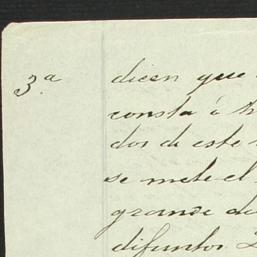 3.ª dicen que
consta ó
dos de este
se mete el
grande de
difuntos